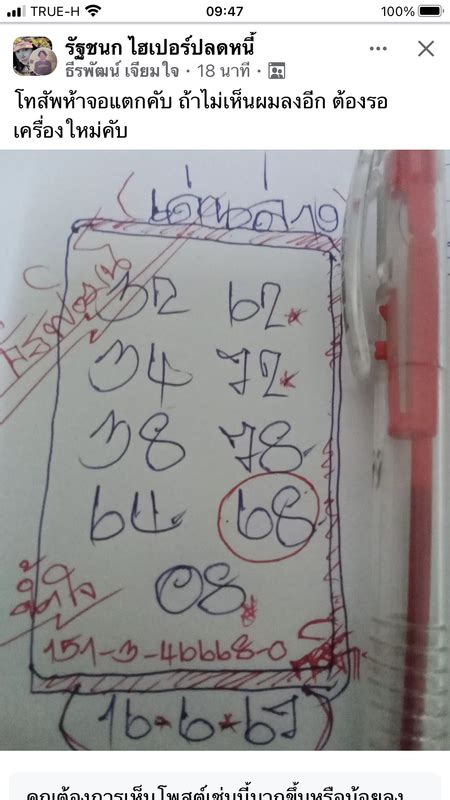 TRUE-H 09:47 100%
รัฐชนก ไฮเปอร์ปลดหนี้
ธีรพัฒน์ เจียมใจ · 18 นาที ·
โทสัพห้าจอแตกคับ ถ้าไม่เห็นผมลงอีก ต้องรอ
เครื่องใหม่คับ
32 62*
34 72*
38 78
64 68
08
151-3-46668-0
16-6*67
คุณต้องการเห็นโพสต์เช่นนี้มากขึ้นหรือน้อยลง